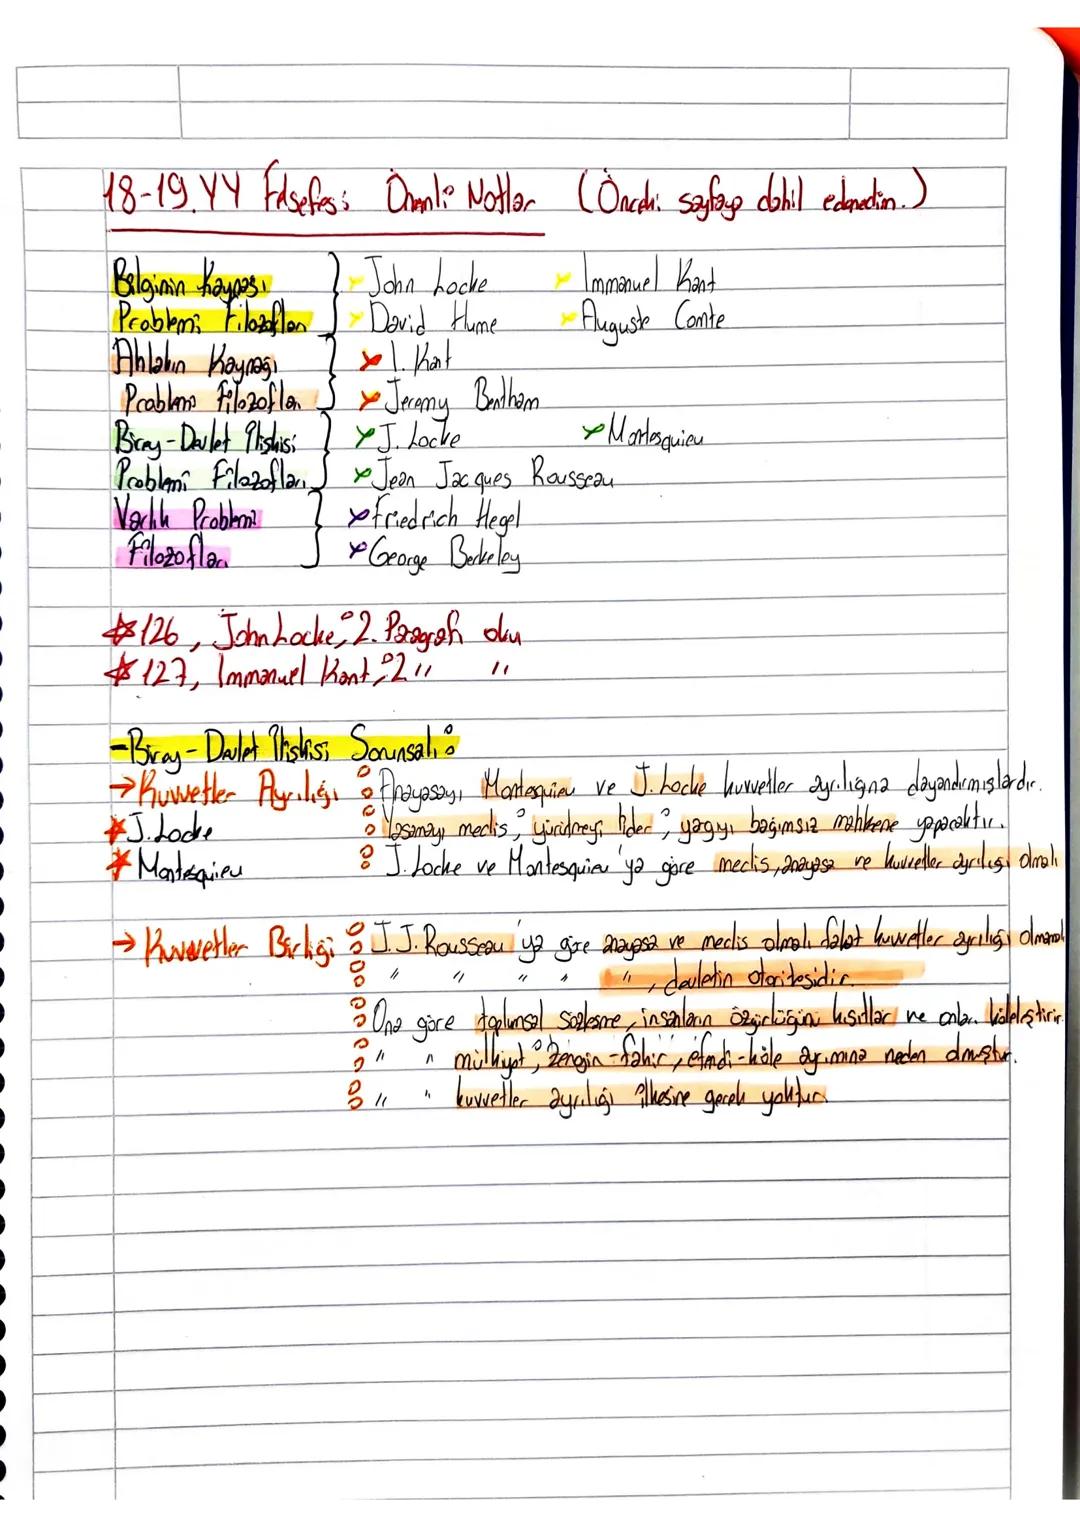 18-19.YY Felsefesi Önemli Notlar (Önceki sayfaya dahil edemedim.)
Bilginin Kaynağı
Problemi Filozofları
John Locke
Immanuel Kant
David Hume
Auguste Comte
Ahlakın Kaynağı
Problemi Filozofları
I. Kant
Jeremy Bentham
Birey-Devlet İlişkisi
Problemi Filozofları
J. Locke
Montesquieu
Jean Jacques Rousseau
Varlık Problemi
Filozofları
Friedrich Hegel
George Berkeley
126, John Locke; 2. Paragrafı oku
127, Immanuel Kant; 2 " "
-Birey-Devlet İlişkisi Sorunsalı:
→Kuvvetler Ayrılığı : Anayasayı, Montesquieu ve J. Locke kuvvetler ayrılığına dayandırmışlardır.
J. Locke : Yasamayı meclis; yürütmeyi lider; yargıyı bağımsız mahkeme yapacaktır.
Montesquieu : J. Locke ve Montesquieu'ya göre meclis, anayasa ve kuvvetler ayrılığı olmalı
→ Kuvvetler Birliği : J. J. Rousseau'ya göre anayasa ve meclis olmalı fakat kuvvetler ayrılığı olmamalı
" " " " ", devletin otoritesidir.
: Ona göre toplumsal sözleşme, insanların özgürlüğünü kısıtlar ve onları köleleştirir.
: " " mülkiyet; zengin-fakir, efendi-köle ayrımına neden olmuştur.
: " " kuvvetler ayrılığı ilkesine gerek yoktur.